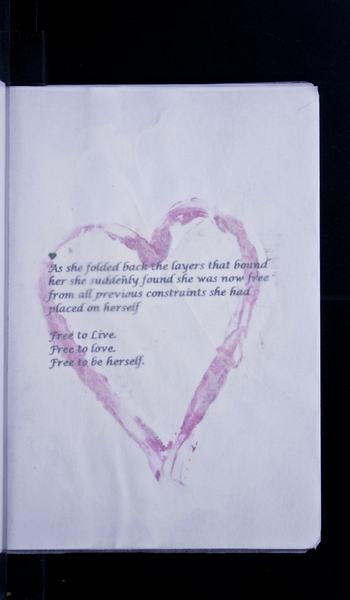 As she folded back the layers that bound
her she suddenly found she was now free
from all previous constraints she had
placed on herself
Free to Live.
Free to love.
Free to be herself.